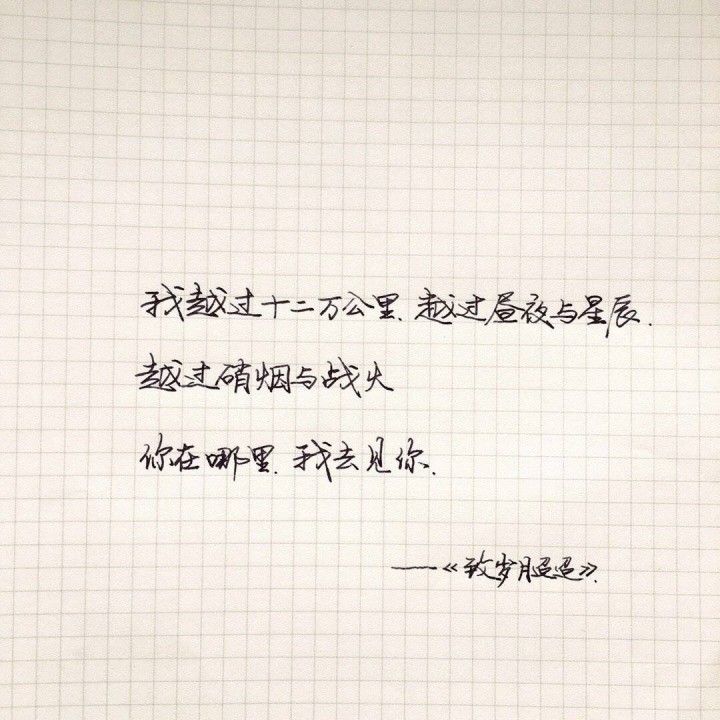 我越过十二万公里.越过昼夜与星辰.
越过硝烟与战火
你在哪里.我去见你.
——《致岁月迢迢》.